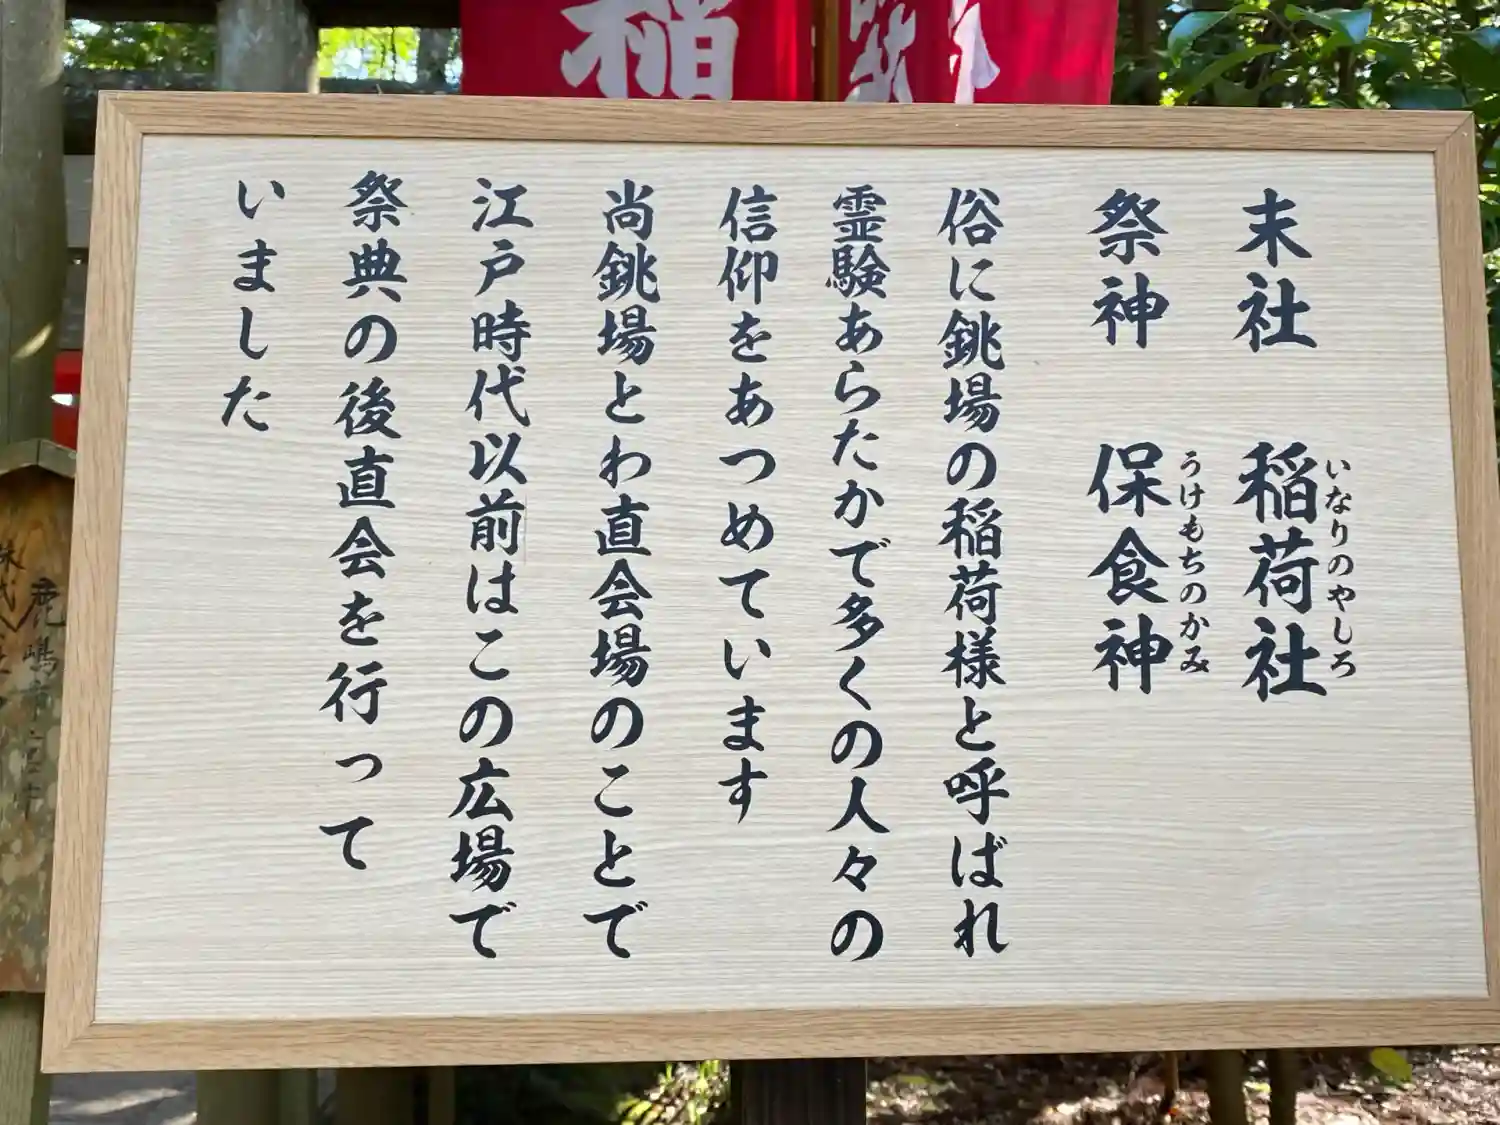 稲
末社 稲荷社
いなりのやしろ
祭神 保食神
うけもちのかみ
俗に銚場の稲荷様と呼ばれ
霊験あらたかで多くの人々の
信仰をあつめています
尚銚場とわ直会場のことで
江戸時代以前はこの広場で
祭典の後直会を行って
いました
鹿嶋市宮中